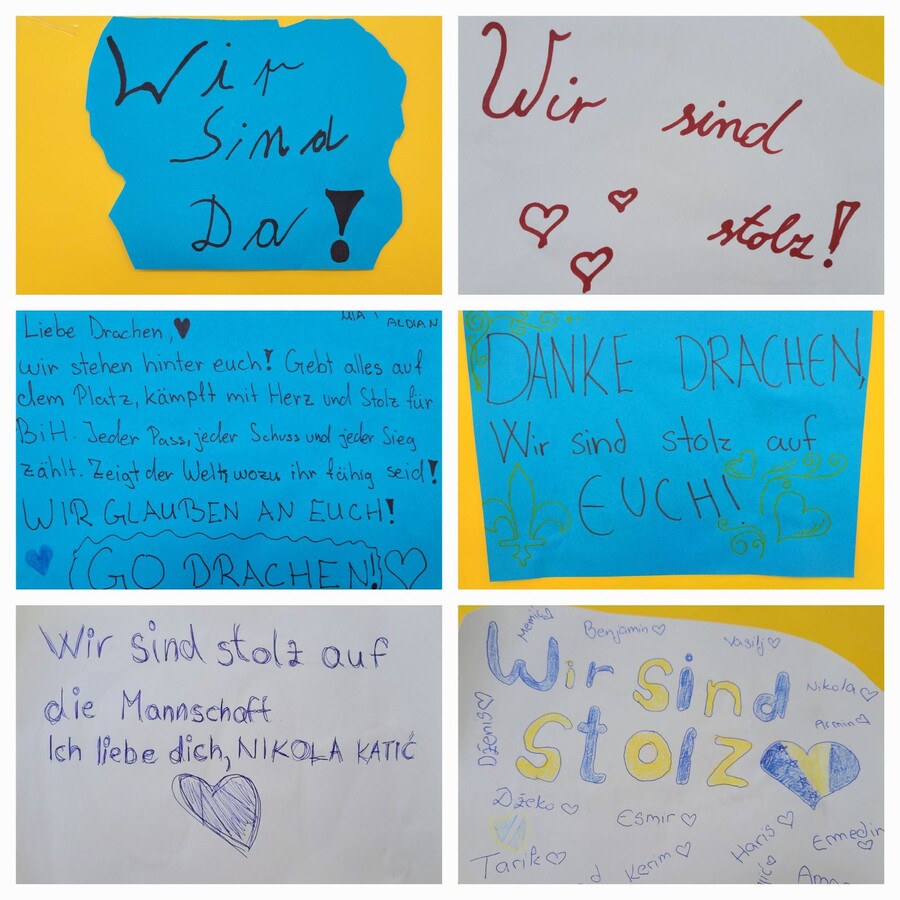 Wir
Sind
Da!
Wir sind
stolz!
MIA ALDIAN
Liebe Drachen,
wir stehen hinter euch! Gebt alles auf
dem Platz, kämpft mit Herz und Stolz für
BiH. Jeder Pass, jeder Schuss und jeder Sieg
zählt. Zeigt der Welt, wozu ihr fähig seid!
WIR GLAUBEN AN EUCH!
GO DRACHEN!
DANKE DRACHEN,
Wir sind stolz auf
EUCH!
Wir sind stolz auf
die Mannschaft
Ich liebe dich, NIKOLA KATIĆ
Memić Benjamin Vasilj
Wir Sind
Nikola
Armin
Dženis
Stolz
Džeko
Esmir
Haris
Ermedin
Tarik
Kerim